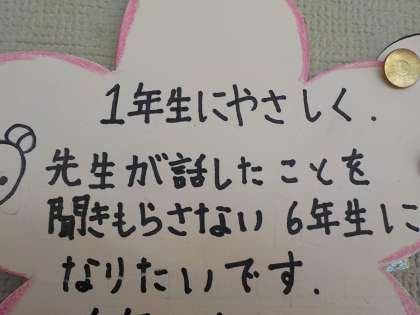 1年生にやさしく.
先生が話したことを
聞きもらさない 6年生に
なりたいです.